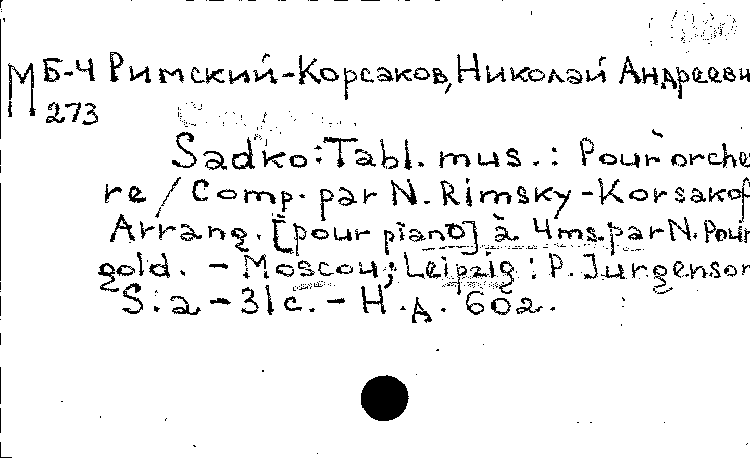 М Б-4 Римский-Корсаков, Николай Андреевич
273
Sadko: Tabl. mus.: Pour orche
re / Comp. par N. Rimsky-Korsakof
Arrang. [pour piano] à 4ms. par N. Pour
gold. - Moscou; Leipzig: P. Jurgenson
S. a - 31 c. - Н. д. 602.